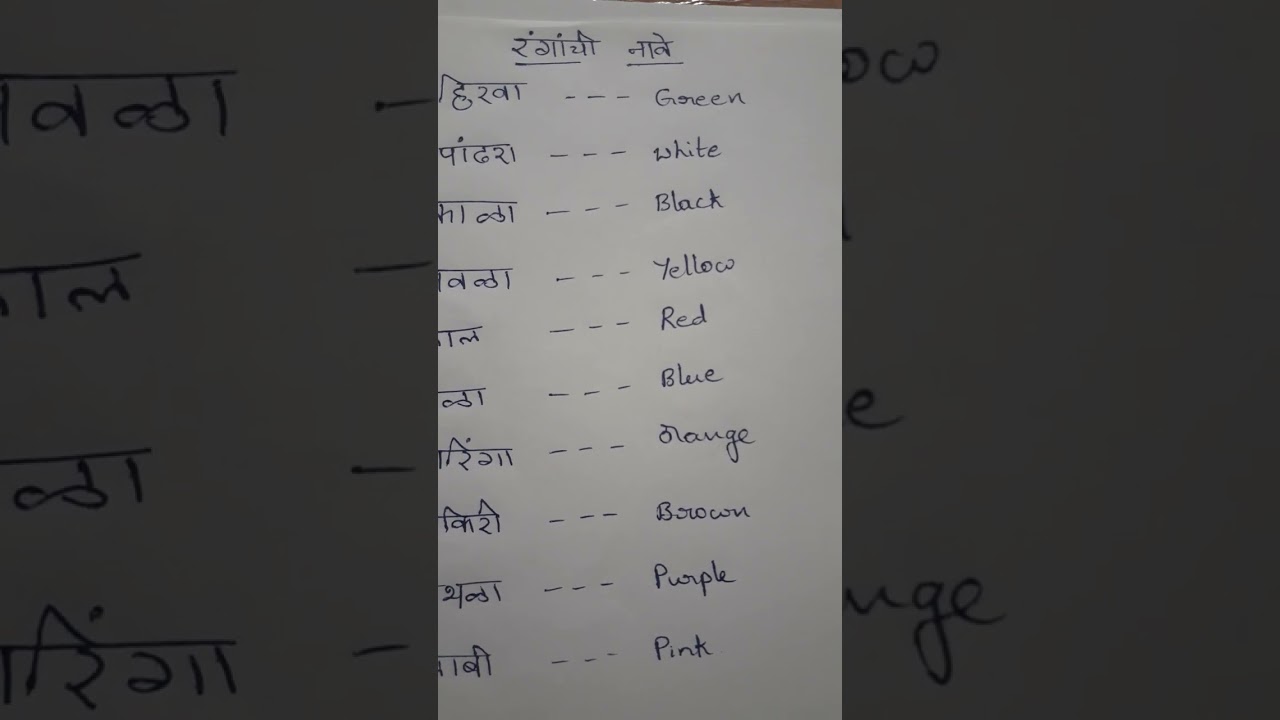 रंगांची नावे
हिरवा --- Green
पांढरा --- white
काळा --- Black
वळा --- Yellow
ाल --- Red
ळा --- Blue
ारिंगा --- Orange
किरी --- Brown
थळा --- Purple
ाबी --- Pink